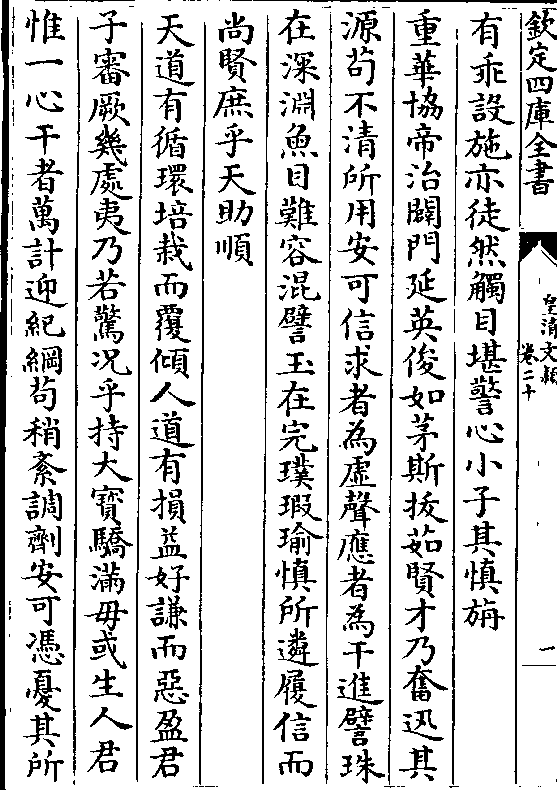 欽定四庫全書
皇清文穎
卷二十
一
有乖設施亦徒然觸目堪警心小子其慎旃
重華協帝治闢門延英俊如茅斯拔茹賢才乃奮迅其
源苟不清所用安可信求者為虛聲應者為干進譬珠
在深淵魚目難容混譬玉在完璞瑕瑜慎所遴履信而
尚賢庶乎天助順
天道有循環培栽而覆傾人道有損益好謙而惡盈君
子審厥幾處夷乃若驚况乎持大寶驕滿毋或生人君
惟一心干者萬計迎紀綱苟稍紊調劑安可憑憂其所